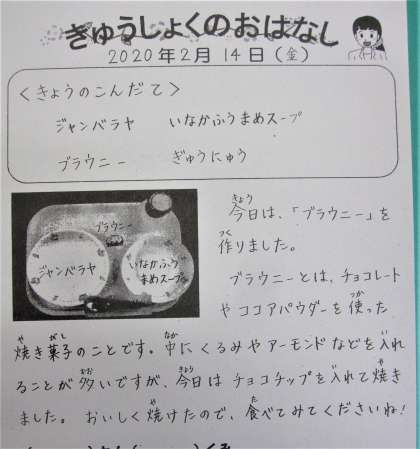 きゅうしょくのおはなし
2020年2月14日(金)
<きょうのこんだて>
ジャンバラヤ　いなかふうまめスープ
ブラウニー　ぎゅうにゅう
ブラウニー
ジャンバラヤ
いなかふう
まめスープ
今日は、「ブラウニー」を
作りました。
ブラウニーとは、チョコレート
やココアパウダーを使った
焼き菓子のことです。中にくるみやアーモンドなどを入れ
ることが多いですが、今日はチョコチップを入れて焼き
ました。おいしく焼けたので、食べてみてくださいね!